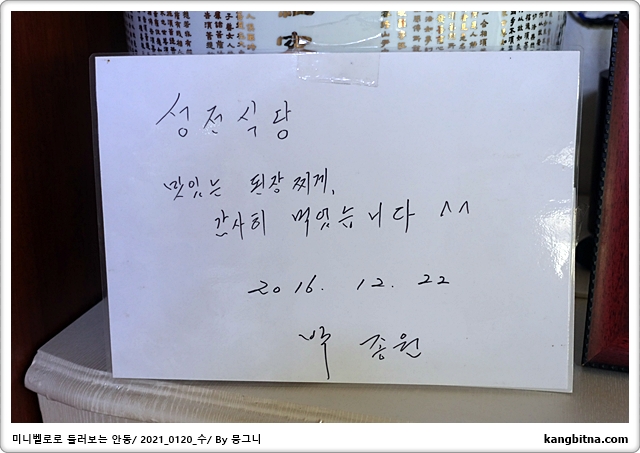 성전식당
맛있는 된장찌게,
감사히 먹었습니다 ^^
2016. 12. 22
백종원
미니벨로로 둘러보는 안동/ 2021_0120_수/ By 뭉그니
kangbitna.com